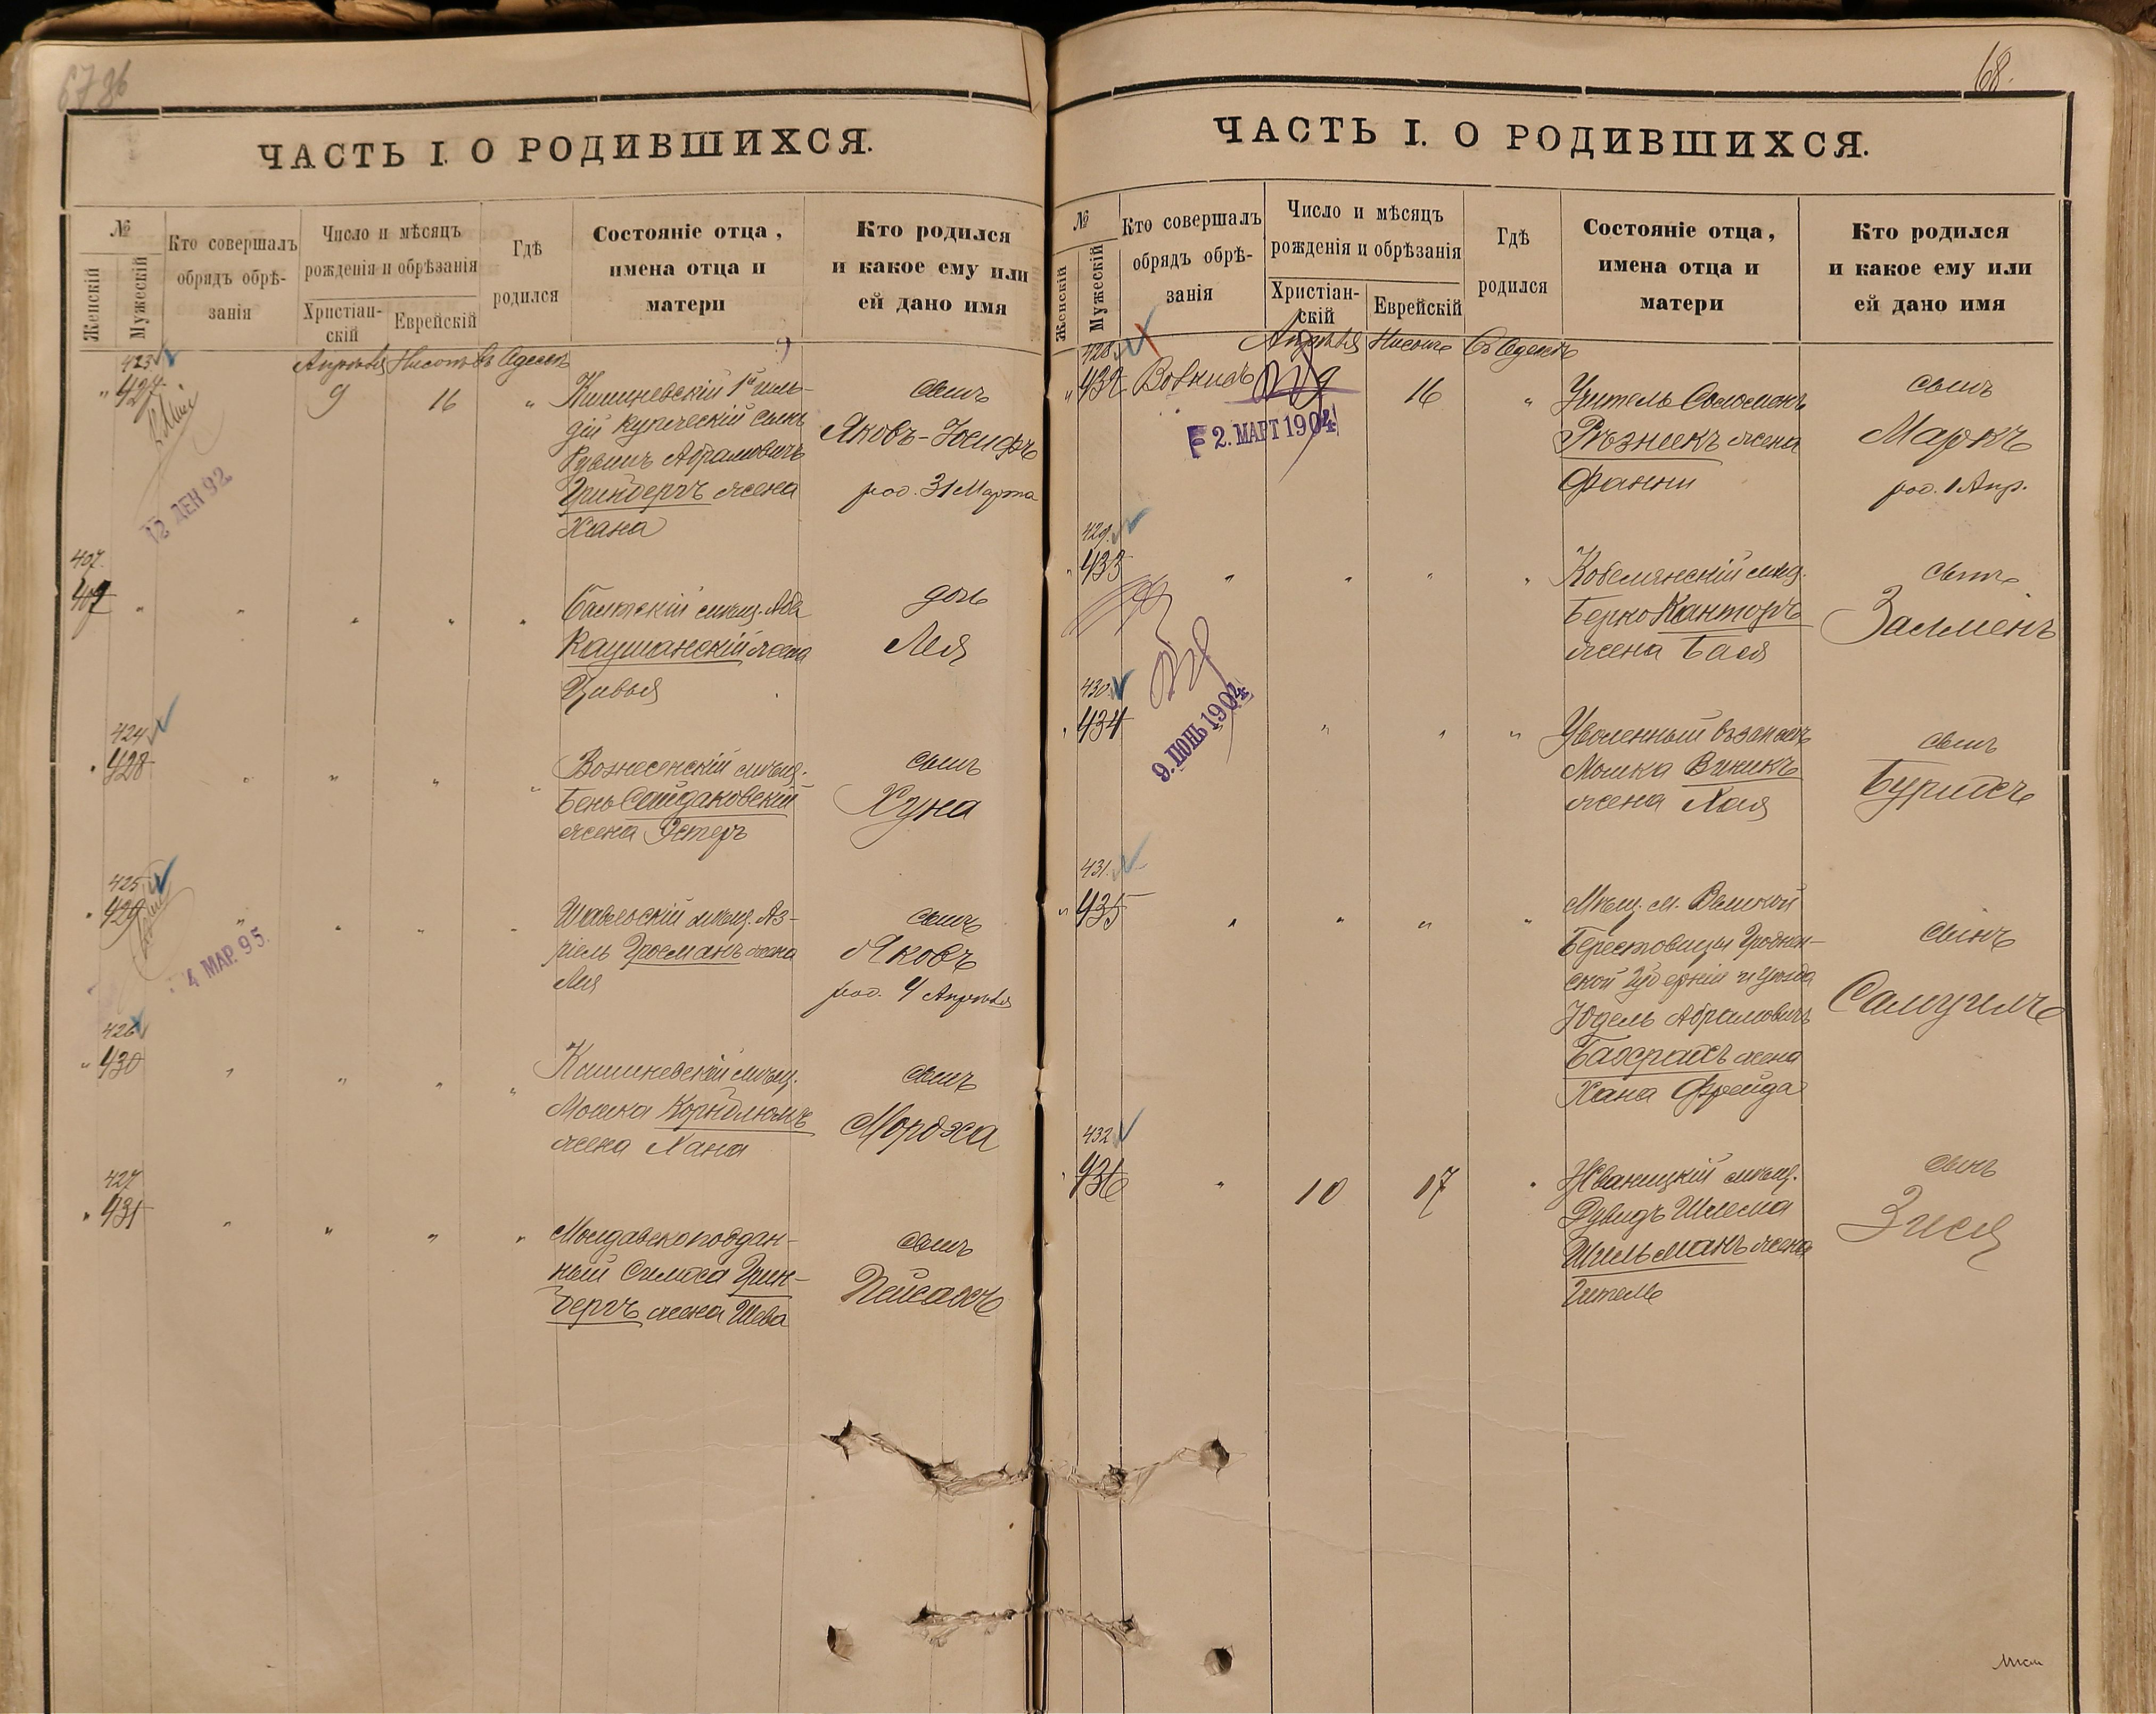 68.
ЧАСТЬ I. О РОДИВШИХСЯ.
№
Женскій
Мужескій
Кто совершалъ
обрядъ обрѣ-
занія
Число и мѣсяцъ
рожденія и обрѣзанія
Христіан-
скій
Еврейскій
Гдѣ
родился
Состояніе отца,
имена отца и
матери
Кто родился
и какое ему или
ей дано имя
Апрѣля Нисонъ Въ Одессѣ
423
427
9
16
"
Кишиневскій 1й гиль-
дій купеческій сынъ
Рувинъ Абрамовичъ
Гринбергъ жена
Хана
сынъ
Яковъ-Іосифъ
род. 31 Марта
12 ДЕН 92
407.
Балтскій мѣщ. Аба
Каушанскій жена
Цивья
дочь
Лея
424
428
Вознесенскій мѣщ.
Бень Сайдаковскій
жена Эстеръ
сынъ
Хуна
425
429
Шавельскій мѣщ. Аз-
ріель Гросманъ жена
Лея
сынъ
Яковъ
род. 4 Апрѣля
4 МАР. 95.
426
430
Кишиневскій мѣщ.
Мошка Корнблюмъ
жена Хана
сынъ
Мордха
427
431
Молдавскоподдан-
ный Симха Грин-
бергъ жена Шева
сынъ
Пейсахъ
ЧАСТЬ I. О РОДИВШИХСЯ.
№
Женскій
Мужескій
Кто совершалъ
обрядъ обрѣ-
занія
Число и мѣсяцъ
рожденія и обрѣзанія
Христіан-
скій
Еврейскій
Гдѣ
родился
Состояніе отца,
имена отца и
матери
Кто родился
и какое ему или
ей дано имя
Апрѣля Нисонъ Въ Одессѣ
428
432
9
16
"
Учитель Соломонъ
Рѣзникъ жена
Фанни
сынъ
Маркъ
род. 1 Апр.
2. МАРТ 1904
429.
433
Кобелякскій мѣщ.
Берко Канторъ
жена Бася
сынъ
Залменъ
9. ІЮНЬ 1904
430
434
Уволенный въ запасъ
Мошка Виникъ
жена Хая
сынъ
Бурихъ
431.
435
Мѣщ. м. Великой
Берестовицы Гроднен-
ской Губерніи и Уѣзда
Юдель Абрамовичъ
Бахрахъ жена
Хана Фрейда
сынъ
Самуилъ
432
436
10
17
Жванецкій мѣщ.
Рувидъ Шлема
Шпильманъ жена
Гитель
сынъ
Зися